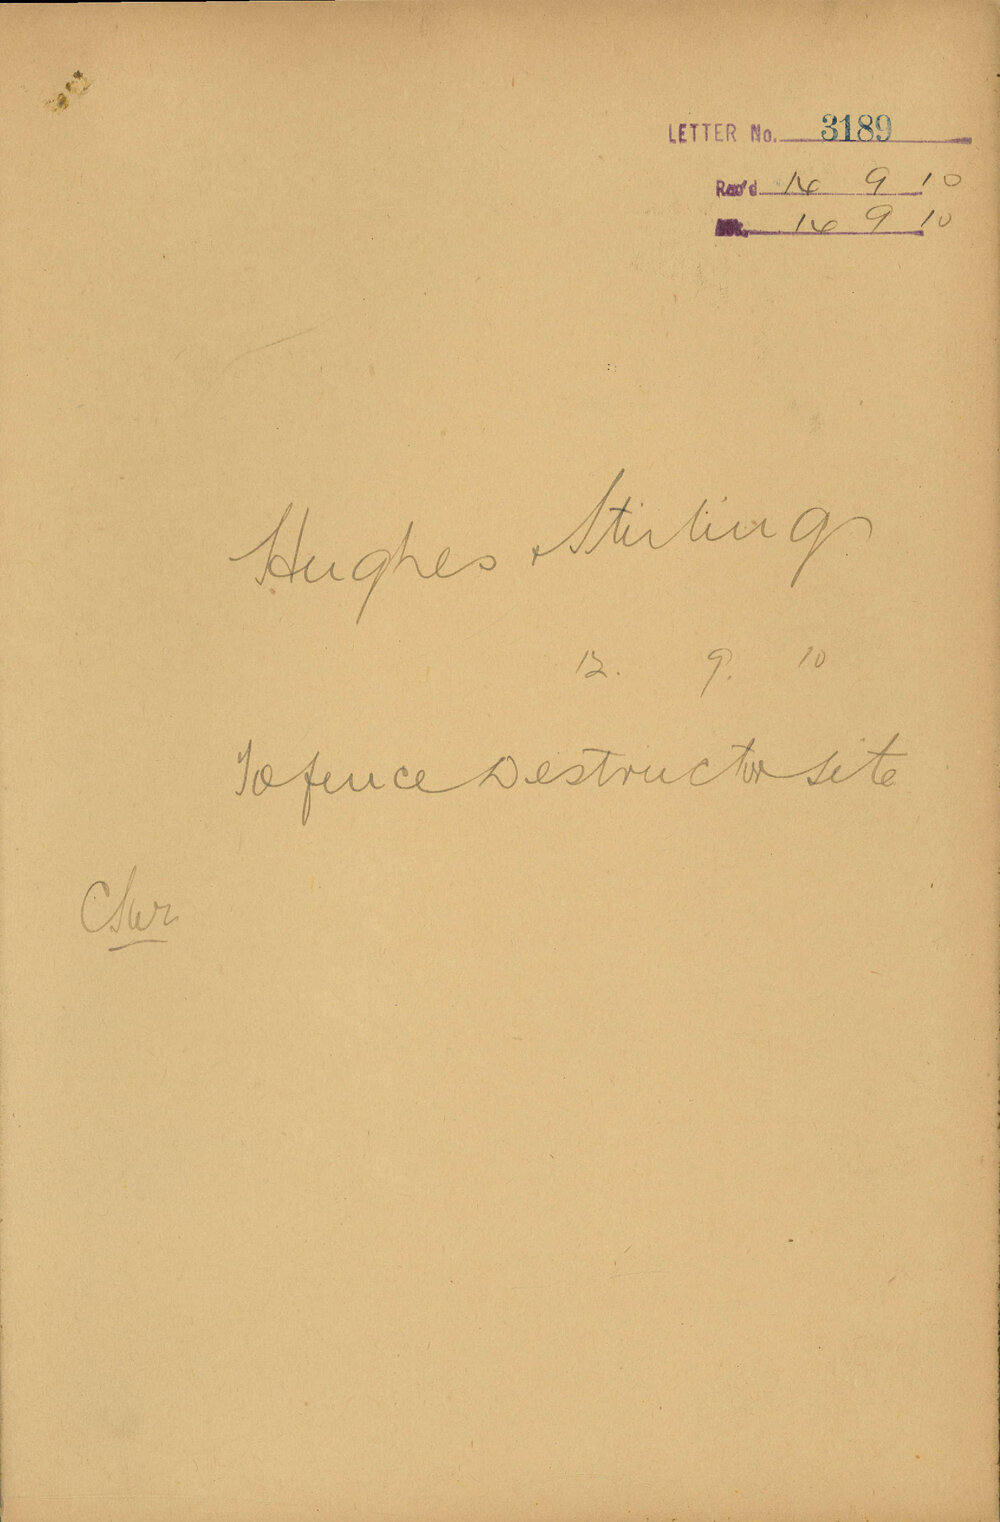 LETTER No. 3189
Rec'd 14 9 10
14 9 10
Hughes & Stirling
12. 9. 10
To fence Destructor site